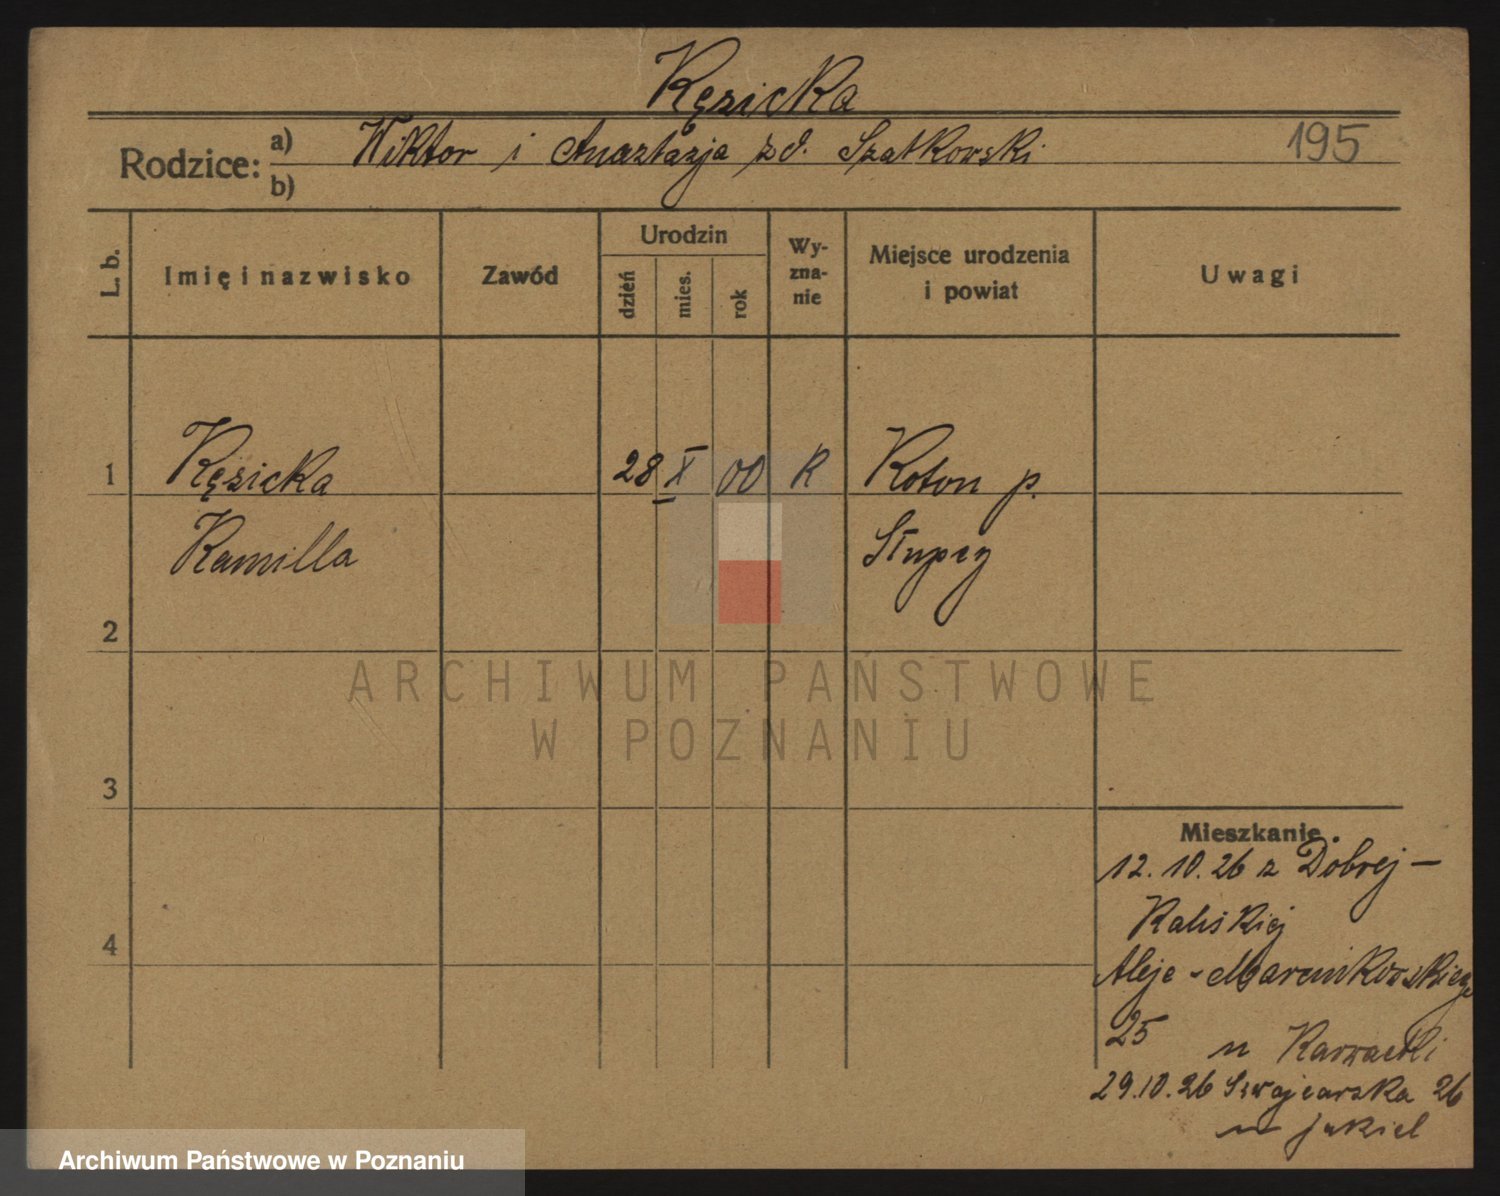 Kęsicka
Rodzice: a) Wiktor i Anastazja z d. Szatkowski 195
b)
L. b. Imię i nazwisko Zawód Urodzin dzień mies. rok Wy-zna-nie Miejsce urodzenia i powiat Uwagi
1 Kęsicka 28 X 00 R Koton p.
Kamilla Słupcy
2
ARCHIWUM PAŃSTWOWE
W POZNANIU
3
Mieszkanie
12.10.26 z Dobrej –
Kaliskiej
4
Aleje - Marcinkowskiego
25 u
29.10.26 Szwajcarska 26
u Jakiel
Archiwum Państwowe w Poznaniu